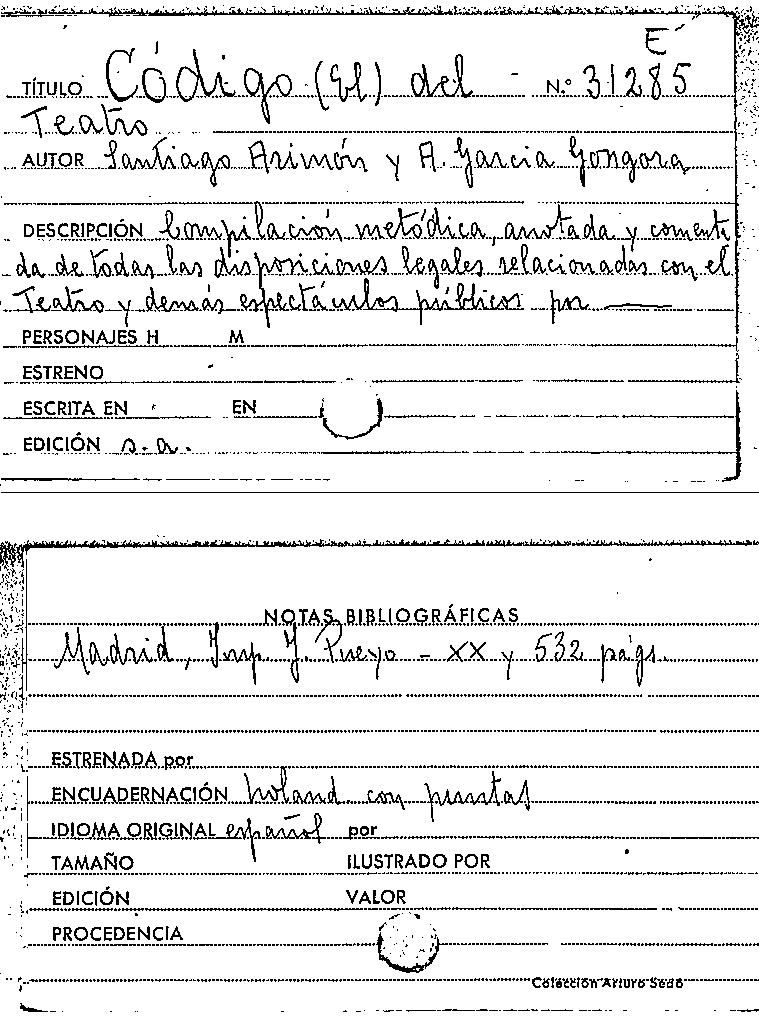 E
TÍTULO Código (El) del - N.º 31285
Teatro
AUTOR Santiago Arimón y A. Garcia Gongora
DESCRIPCIÓN Compilación metódica, anotada y comenta
da de todas las disposiciones legales relacionadas con el
Teatro y demás espectáculos públicos por ———
PERSONAJES H M
ESTRENO
ESCRITA EN EN
EDICIÓN s.a.
NOTAS BIBLIOGRÁFICAS
Madrid, Imp. J. Pueyo - XX y 532 págs.
ESTRENADA por
ENCUADERNACIÓN holand. con puntas
IDIOMA ORIGINAL español por
TAMAÑO ILUSTRADO POR
EDICIÓN VALOR
PROCEDENCIA
Colección Arturo Sedó